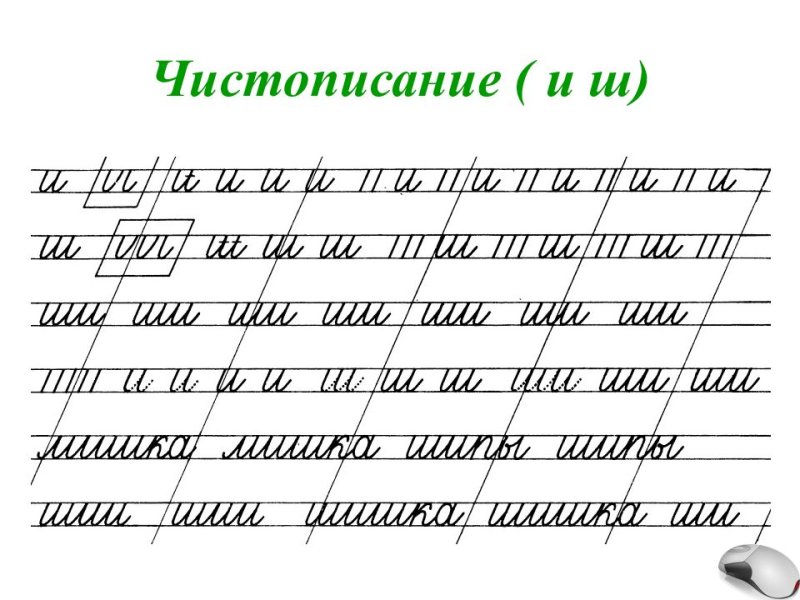 Чистописание ( и ш)
и и и и и и и и и и
ш ш ш ш ш ш ш
ши ши ши ши ши ши ши
и и и и ш ш ш ши ши ши
мишка мишка шипы шипы
шишка шишка ши